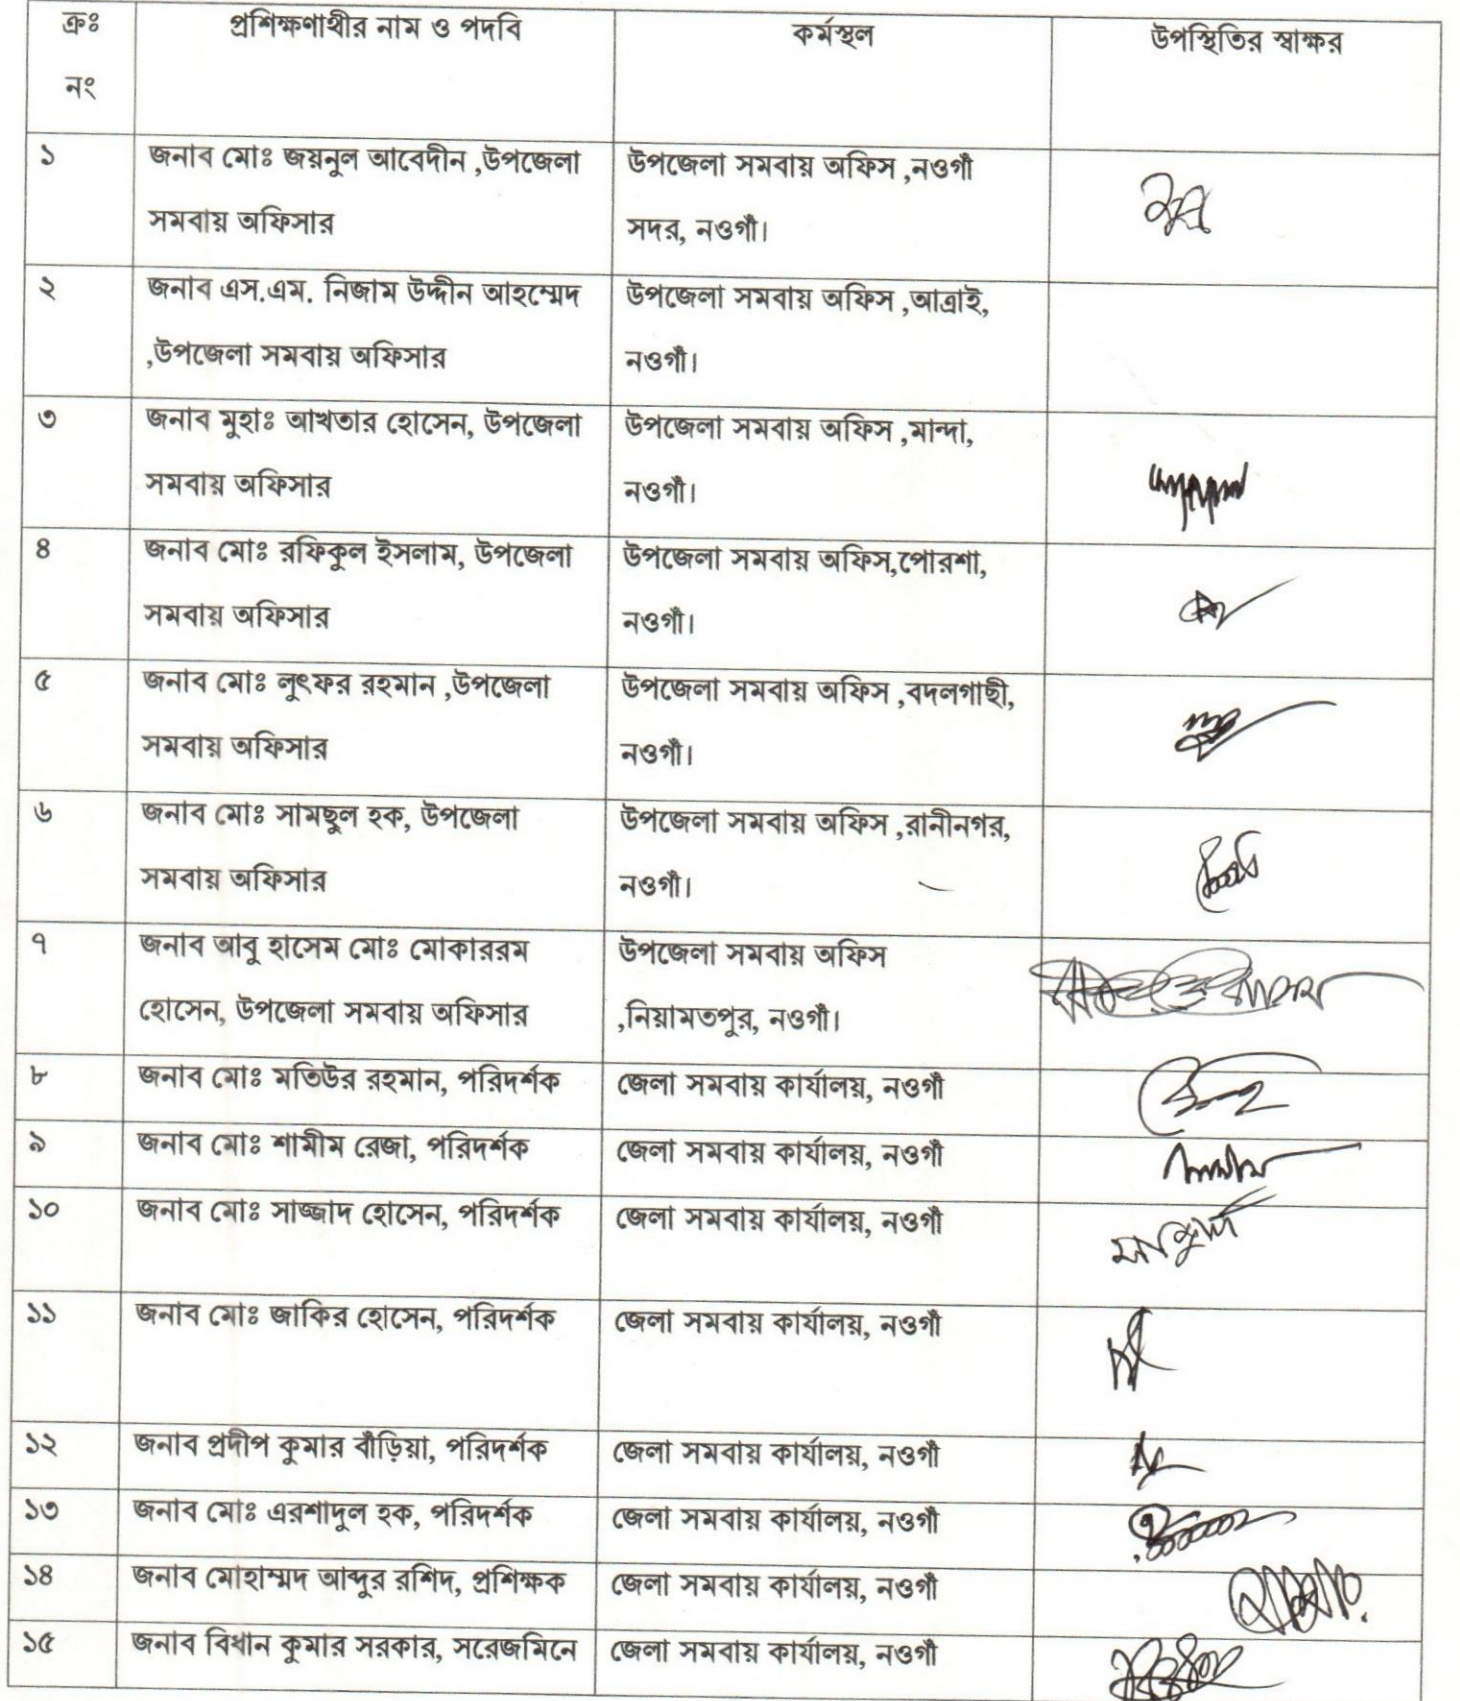 ক্রঃ নং প্রশিক্ষণার্থীর নাম ও পদবি কর্মস্থল উপস্থিতির স্বাক্ষর
১ জনাব মোঃ জয়নুল আবেদীন ,উপজেলা উপজেলা সমবায় অফিস ,নওগাঁ
সমবায় অফিসার সদর, নওগাঁ।
২ জনাব এস.এম. নিজাম উদ্দীন আহম্মেদ উপজেলা সমবায় অফিস ,আত্রাই,
,উপজেলা সমবায় অফিসার নওগাঁ।
৩ জনাব মুহাঃ আখতার হোসেন, উপজেলা উপজেলা সমবায় অফিস ,মান্দা,
সমবায় অফিসার নওগাঁ।
৪ জনাব মোঃ রফিকুল ইসলাম, উপজেলা উপজেলা সমবায় অফিস,পোরশা,
সমবায় অফিসার নওগাঁ।
৫ জনাব মোঃ লুৎফর রহমান ,উপজেলা উপজেলা সমবায় অফিস ,বদলগাছী,
সমবায় অফিসার নওগাঁ।
৬ জনাব মোঃ সামছুল হক, উপজেলা উপজেলা সমবায় অফিস ,রানীনগর,
সমবায় অফিসার নওগাঁ।
৭ জনাব আবু হাসেম মোঃ মোকাররম উপজেলা সমবায় অফিস
হোসেন, উপজেলা সমবায় অফিসার ,নিয়ামতপুর, নওগাঁ।
৮ জনাব মোঃ মতিউর রহমান, পরিদর্শক জেলা সমবায় কার্যালয়, নওগাঁ
৯ জনাব মোঃ শামীম রেজা, পরিদর্শক জেলা সমবায় কার্যালয়, নওগাঁ
১০ জনাব মোঃ সাজ্জাদ হোসেন, পরিদর্শক জেলা সমবায় কার্যালয়, নওগাঁ
১১ জনাব মোঃ জাকির হোসেন, পরিদর্শক জেলা সমবায় কার্যালয়, নওগাঁ
১২ জনাব প্রদীপ কুমার বাঁড়িয়া, পরিদর্শক জেলা সমবায় কার্যালয়, নওগাঁ
১৩ জনাব মোঃ এরশাদুল হক, পরিদর্শক জেলা সমবায় কার্যালয়, নওগাঁ
১৪ জনাব মোহাম্মদ আব্দুর রশিদ, প্রশিক্ষক জেলা সমবায় কার্যালয়, নওগাঁ
১৫ জনাব বিধান কুমার সরকার, সরেজমিনে জেলা সমবায় কার্যালয়, নওগাঁ